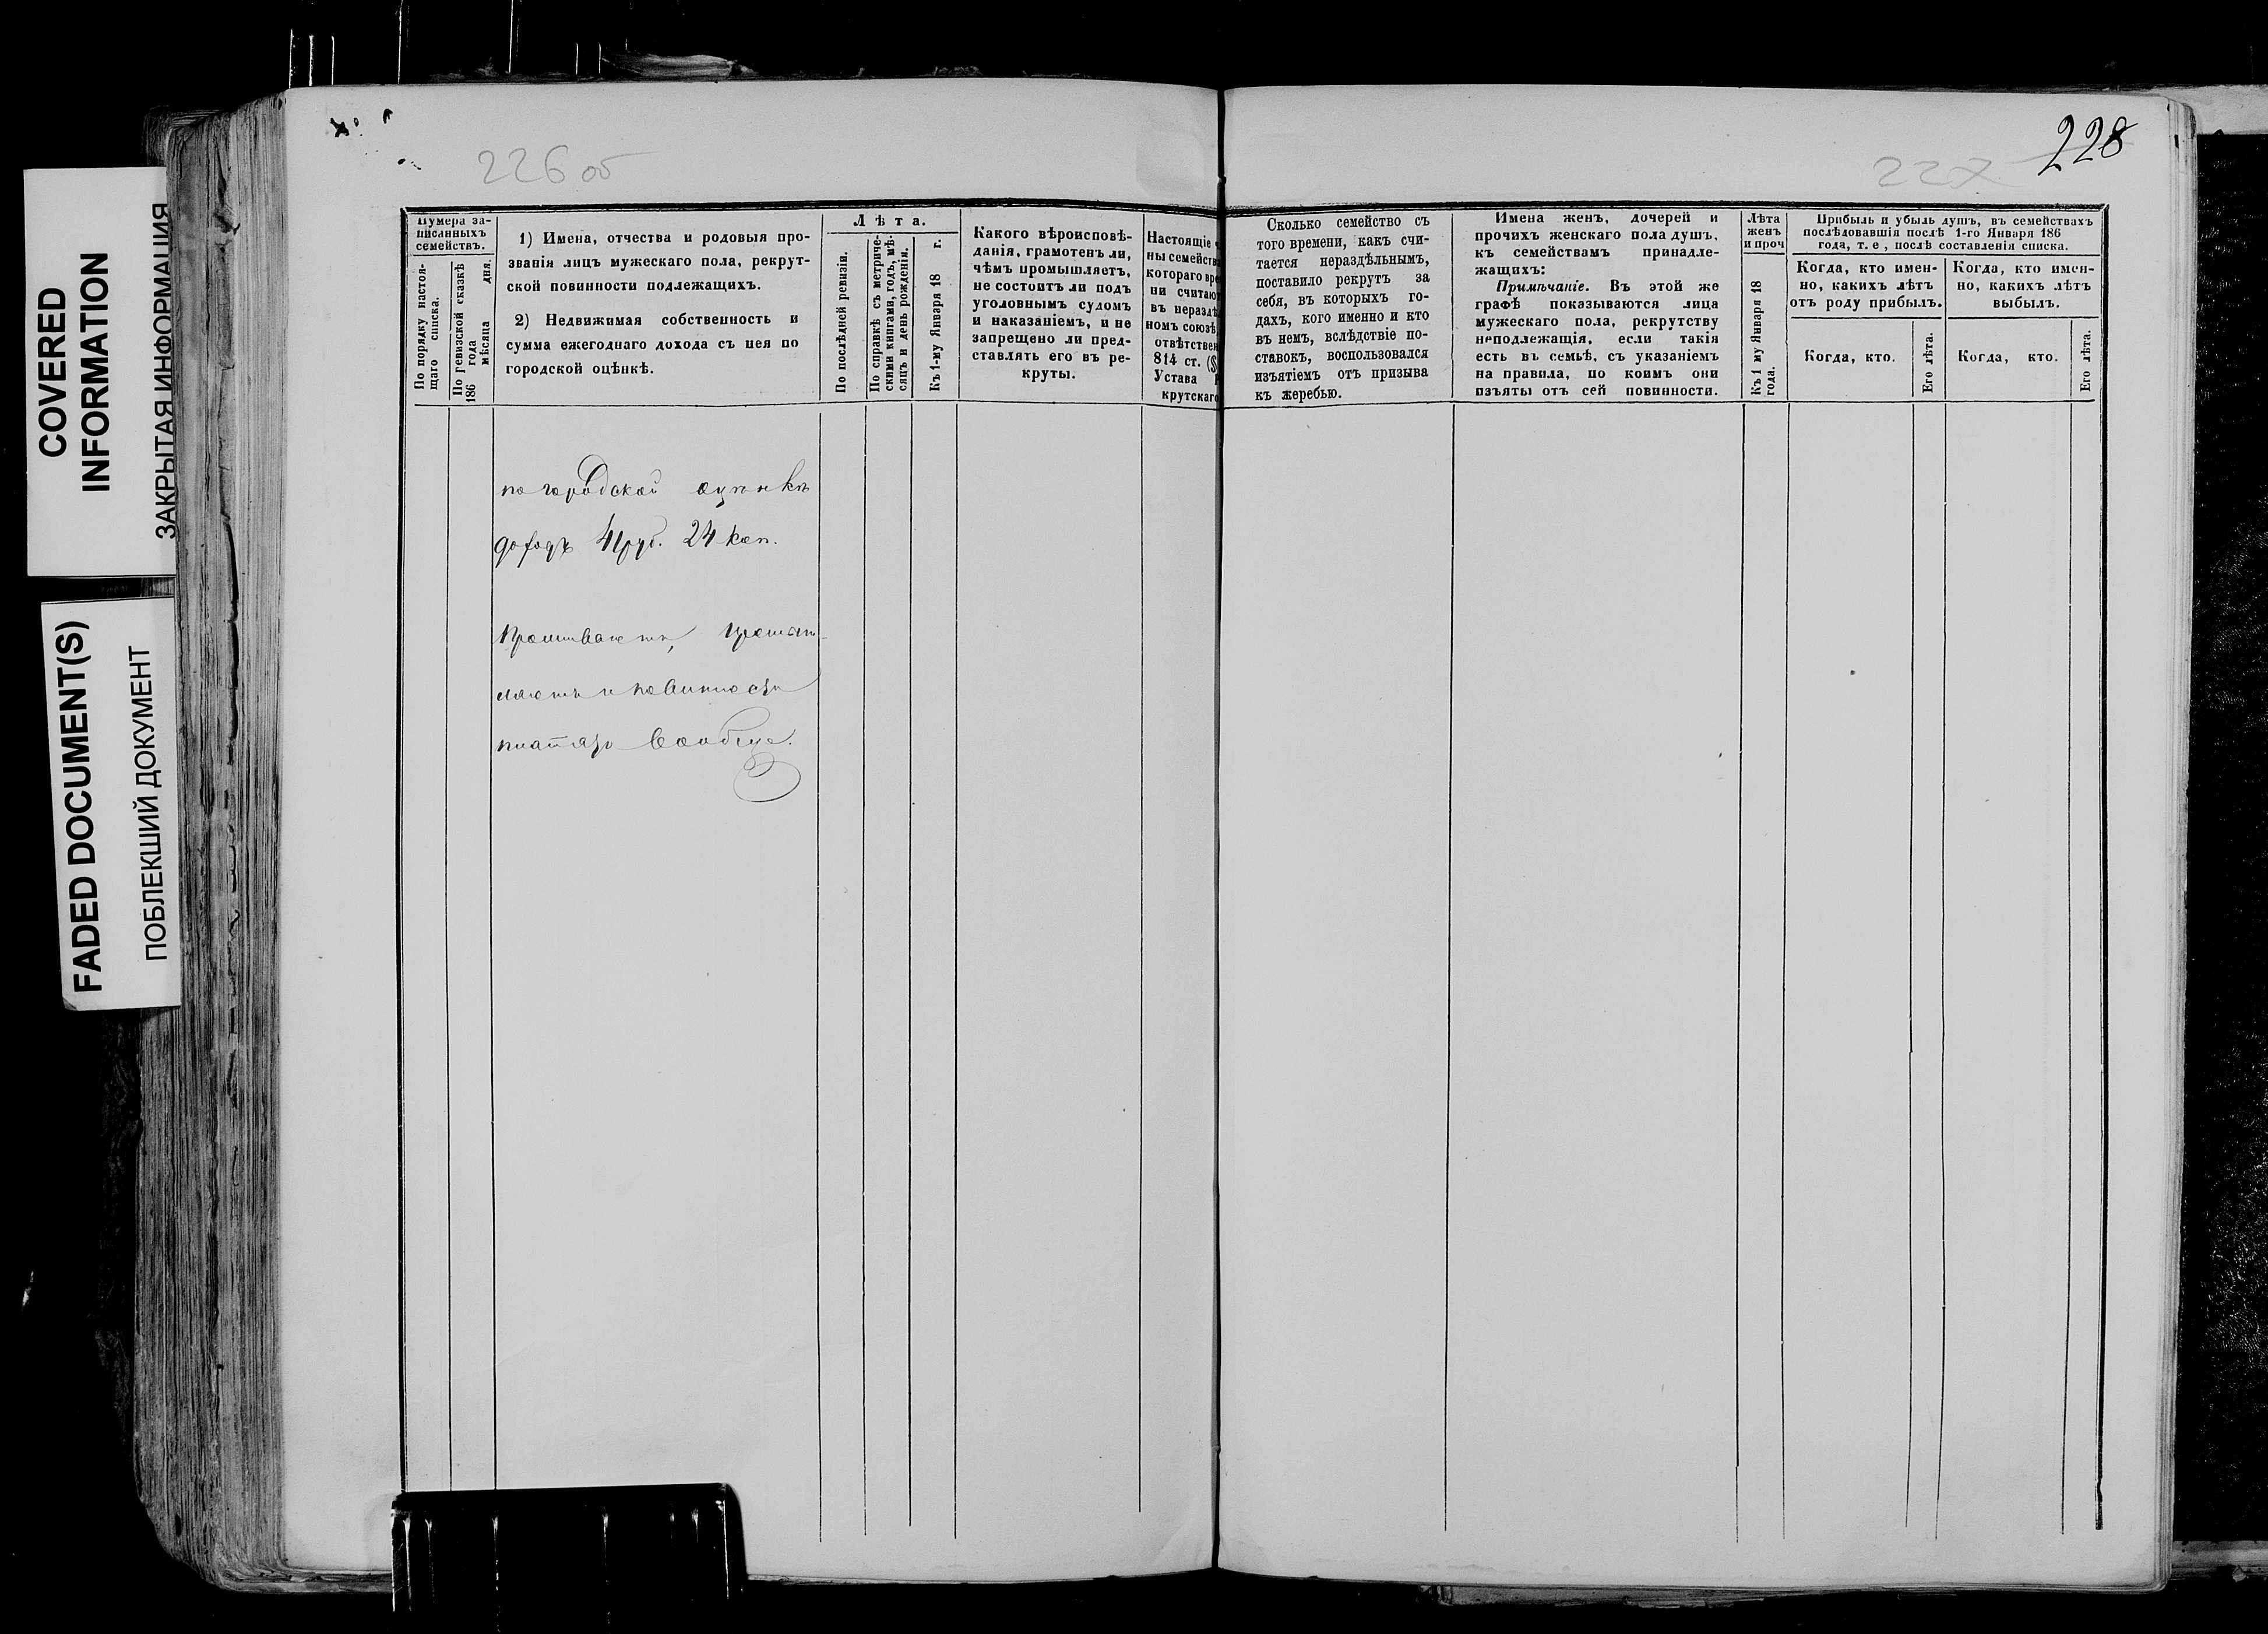 COVERED
INFORMATION
ЗАКРЫТАЯ ИНФОРМАЦИЯ
FADED DOCUMENT(S)
ПОБЛЕКШИЙ ДОКУМЕНТ
226 об
227
228
Нумера за-
писанныхъ
семействъ.
По порядку настоя-
щаго списка.
По ревизской сказкѣ
186 года
мѣсяца дня.
1) Имена, отчества и родовыя про-
званія лицъ мужескаго пола, рекрут-
ской повинности подлежащихъ.
2) Недвижимая собственность и
сумма ежегоднаго дохода съ нея по
городской оцѣнкѣ.
Лѣта.
По послѣдней ревизіи.
По справкѣ съ метриче-
скими книгами, годъ, мѣ-
сяцъ и день рожденія.
Къ 1-му Января 18 г.
Какого вѣроисповѣ-
данія, грамотенъ ли,
чѣмъ промышляетъ,
не состоитъ ли подъ
уголовнымъ судомъ
и наказаніемъ, и не
запрещено ли пред-
ставлять его въ ре-
круты.
Настоящіе
ны семейств
котораго вре
ни считаю
въ нераздѣ
номъ союзѣ
отвѣтствен
814 ст. (§
Устава
крутскаго
Сколько семейство съ
того времени, какъ счи-
тается нераздѣльнымъ,
поставило рекрутъ за
себя, въ которыхъ го-
дахъ, кого именно и кто
въ немъ, вслѣдствіе по-
ставокъ, воспользовался
изъятіемъ отъ призыва
къ жеребью.
Имена женъ, дочерей и
прочихъ женскаго пола душъ,
къ семействамъ принадле-
жащихъ:
Примѣчаніе. Въ этой же
графѣ показываются лица
мужескаго пола, рекрутству
неподлежащія, если такія
есть въ семьѣ, съ указаніемъ
на правила, по коимъ они
изъяты отъ сей повинности.
Лѣта
женъ
и проч
Къ 1 му Января 18
года.
Прибыль и убыль душъ, въ семействахъ
послѣдовавшія послѣ 1-го Января 186
года, т. е , послѣ составленія списка.
Когда, кто имен-
но, какихъ лѣтъ
отъ роду прибылъ.
Когда, кто имен-
но, какихъ лѣтъ
выбылъ.
Когда, кто.
Его лѣта.
Когда, кто.
Его лѣта.
по городской оцѣнкѣ
доходъ 41 руб. 24 коп.
Проживаютъ, промыш-
ляютъ и повинности
платятъ вообще.